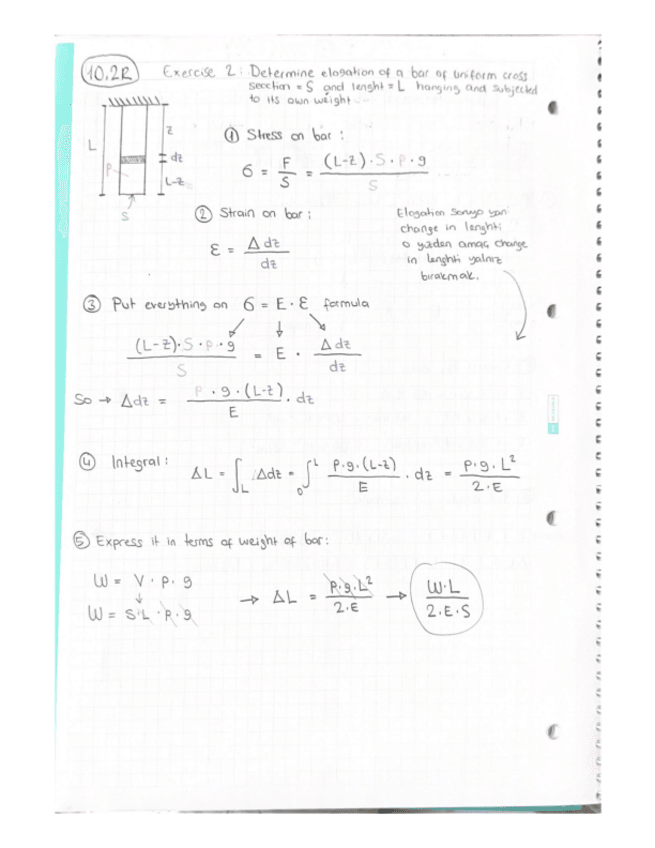 10.2R
Exercise 2: Determine elogation of a bar of uniform cross
section = S and lenght = L hanging and subjected
to its own weight.
L
z
dz
P
L-z
S
① Stress on bar:
6 = F/S = (L-z)·S·p·g / S
② Strain on bar:
ε = Δdz / dz
Elogation soruyo yani
change in lenghti
o yüzden amaç change
in lenghti yalnız
bırakmak.
③ Put everything on 6 = E·ε formula
(L-z)·S·p·g / S = E · Δdz / dz
So → Δdz = p·g·(L-z) / E · dz
④ Integral:
ΔL = ∫L Δdz = ∫0^L p·g·(L-z) / E · dz = p·g·L² / 2·E
⑤ Express it in terms of weight of bar:
W = V·p·g
↓
W = S·L·p·g
→ ΔL = p·g·L² / 2·E → W·L / 2·E·S